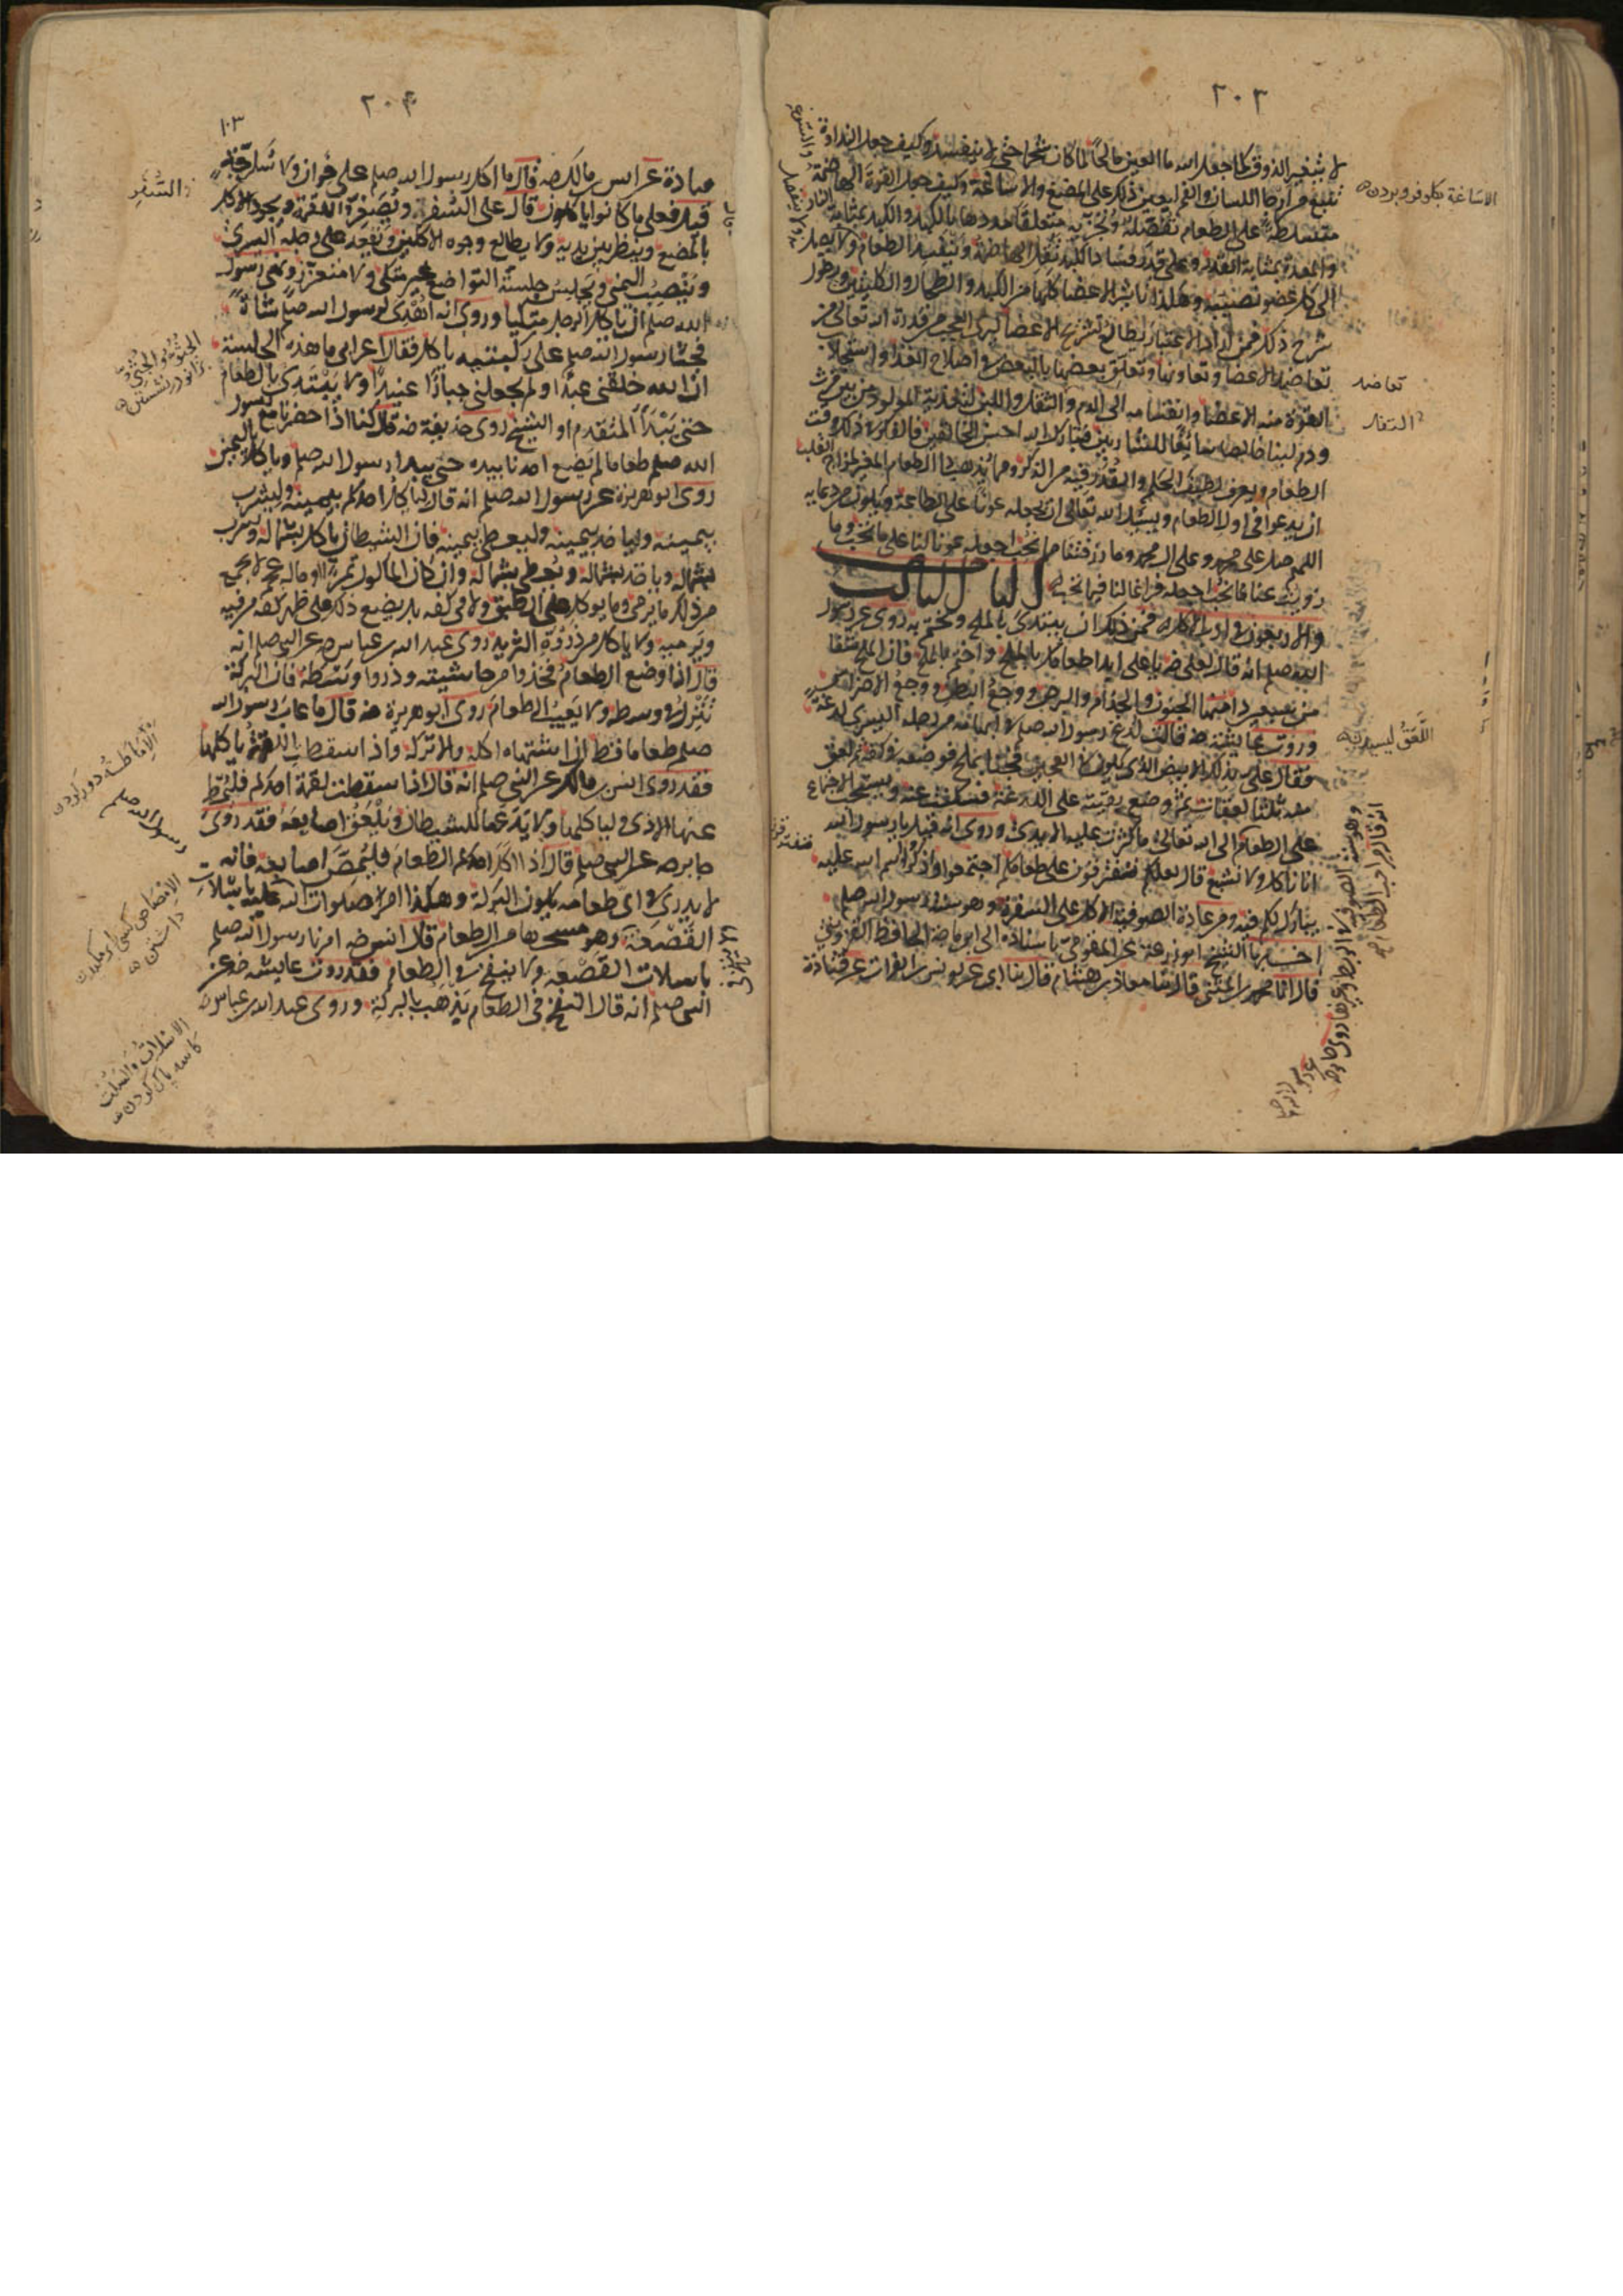 ٢٠٣
لا يتغير الذوق كما جعل الله ماء العين مالحا لما كان شحما حتى لا يفسد وكيف جعل النداوة
تنبع من ارجاء اللسان والفم ليعين ذلك على المضغ والاساغة وكيف جعل القوة الهاضمة
متسلطة على الطعام تفصله وتجزيه متعلقا مددها بالكبد والكبد بمثابة النار
والمعدة بمثابة القدر وعلى قدر فساد الكبد تقل الهاضمة ويفسد الطعام ولا يصل
الى كل عضو نصيبه وهكذا تاثير الاعضاء كلها من الكبد والطحال والكليتين ويطول
شرح ذلك فمن اراد الاعتبار يطالع تشريح الاعضاء ليرى العجب من قدرة الله تعالى من
تعاضد الاعضاء وتعاونها وتعلق بعضها بالبعض في اصلاح الغذاء واستجذاب
القوة منه للاعضاء وانقسامه الى الدم والثفل واللبن لتغذية المولود من بين فرث
ودم لبنا خالصا سائغا للشاربين فتبارك الله احسن الخالقين فالفكر في ذلك وقت
الطعام ويعرف لطيف الحكم والقدر فيه من الذكر ومما يذهب داء الطعام المغير لمزاج القلب
ان يدعو في اول الطعام ويسئل الله تعالى ان يجعله عونا على الطاعة ويكون من دعايه
اللهم صل على محمد وعلى ال محمد وما رزقتنا مما نحب اجعله عونا لنا على ما تحب وما
زويت عنا مما نحب اجعله فراغا لنا فيما تحب الباب الثالث
والاربعون في اداب الاكل فمن ذلك ان يبتدئ بالملح ويختم به روي عن رسول
الله صلم انه قال لعلي رضه يا علي ابدا طعامك بالملح واختم بالملح فان الملح شفا
من سبعين داء منها الجنون والجذام والبرص ووجع البطن ووجع الاضراس
وروت عايشة رضه قالت لدغ رسول الله صلم في ابهامه من رجله اليسرى لدغة
فقال علي بذلك الابيض الذي يكون في العجين فجئنا بملح فوضعه في كفه ثم لعق
منه ثلث لعقات ثم وضع بقيته على اللدغة فسكنت عنه ويستحب الاجتماع
على الطعام الى الله تعالى ما كثرت عليه الايدي وروي انه قيل يا رسول الله
انا ناكل ولا نشبع قال لعلكم تفترقون على طعامكم اجتمعوا واذكروا اسم الله عليه
يبارك لكم فيه ومن عادة الصوفية الاكل على السفرة وهو سنة رسول الله صلم
اخبرنا الشيخ ابو زرعة عن المقومي باسناده الى ابن ماجه الحافظ القزويني
قال انا محمد بن المثنى قال ثنا معاذ بن هشام قال ثنا ابي عن يونس بن الفرات عن قتادة
الاساغة بكلو فرو بردن
تعاضد
الثفل
اللعق ليسيدن
٢٠٤
١٠٣
عن انس بن مالك رضه قال ما اكل رسول الله صلم على خوان ولا سكرجة
قيل فعلى ما كانوا ياكلون قال على السفر ويصغر اللقمة ويجود الاكل
بالمضغ وينظر بين يديه ولا يطالع وجوه الاكلين ويقعد على رجله اليسرى
وينصب اليمنى ويجلس جلسة التواضع غير متكئ ولا متعزز ونهى رسول
الله صلم ان ياكل الرجل متكيا وروي انه اهدى لرسول الله صلم شاة
فجثا رسول الله صلم على ركبتيه ياكل فقال اعرابي ما هذه الجلسة
ان الله خلقني عبدا ولم يجعلني جبارا عنيدا ولا يبتدئ بالطعام
حتى يبدا المتقدم او الشيخ روى حذيفة رضه قال كنا اذا حضرنا مع رسول
الله صلم طعاما لم يضع احدنا يده حتى يبدا رسول الله صلم وياكل باليمين
روى ابو هريرة عن رسول الله صلم انه قال لياكل احدكم بيمينه وليشرب
بيمينه ولياخذ بيمينه وليعط بيمينه فان الشيطان ياكل بشماله ويشرب
بشماله وياخذ بشماله ويعطي بشماله وان كان الماكول تمرا او ما له عجم لا يجمع
من ذلك ما يرمى وما يوكل على الطبق ولا في كفه بل يضع ذلك على ظهر كفه من فيه
ويرميه ولا ياكل من ذروة الثريد روى عبد الله بن عباس رضه عن النبي صلم انه
قال اذا وضع الطعام فخذوا من حاشيته وذروا وسطه فان البركة
تنزل في وسطه ولا يعيب الطعام روى ابو هريرة رضه قال ما عاب رسول الله
صلم طعاما قط ان اشتهاه اكله والا تركه واذا سقطت اللقمة ياكلها
فقد روى انس بن مالك عن النبي صلم انه قال اذا سقطت لقمة احدكم فليمط
عنها الاذى ولياكلها ولا يدعها للشيطان ويلعق اصابعه فقد روى
جابر رضه عن النبي صلم قال اذا اكل احدكم الطعام فليمص اصابعه فانه
لا يدري في اي طعامه يكون البركة وهكذا امر صلوات الله عليه باسلات
القصعة وهو مسحها من الطعام قال انس رضه امرنا رسول الله صلم
باسلات القصعة ولا ينفخ في الطعام فقد روت عايشه رضه عن
النبي صلم انه قال النفخ في الطعام يذهب بالبركة وروى عبد الله بن عباس
السفر
الجثو والجثي بزانو در نشستن
الاماطة دور كردن
رسول الله صلم
داشتن
الاسلات والسلت
كاسه پاك كردن